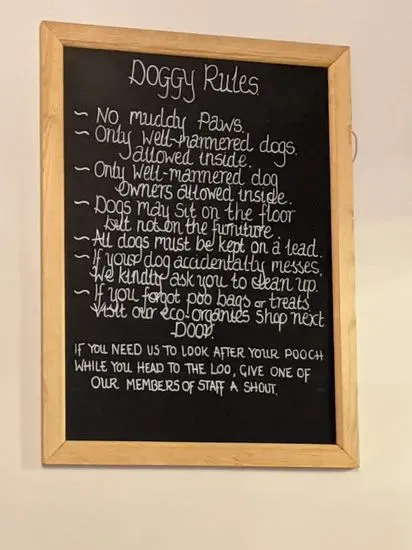 Doggy Rules
~ No muddy Paws.
~ Only well-mannered dogs.
allowed inside.
~ Only well-mannered dog
owners allowed inside.
~ Dogs may sit on the floor
but not on the furniture.
~ All dogs must be kept on a lead.
~ If your dog accidentally messes,
We kindly ask you to clean up.
~ If you forgot poo bags or treats
Visit our eco.organics shop next
DOOR.
IF YOU NEED US TO LOOK AFTER YOUR POOCH
WHILE YOU HEAD TO THE LOO, GIVE ONE OF
OUR MEMBERS OF STAFF A SHOUT.